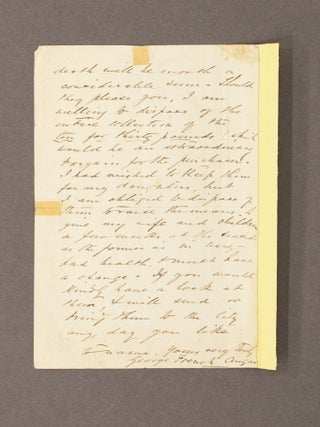 death will be worth a
considerable sum - Should
they please you, I am
willing to dispose of the
entire collection of the
ten for thirty pounds, which
would be an extraordinary
bargain for the purchaser.
I had wished to keep them
for my daughters, but
I am obliged to dispose of
them to raise the means to
give my wife and children
a few weeks at the
as the former is in very
bad health, & must have
a change. If you would
kindly have a look at
them, I will send or
bring them to the City
any day you like
Yours very truly
George French Angas